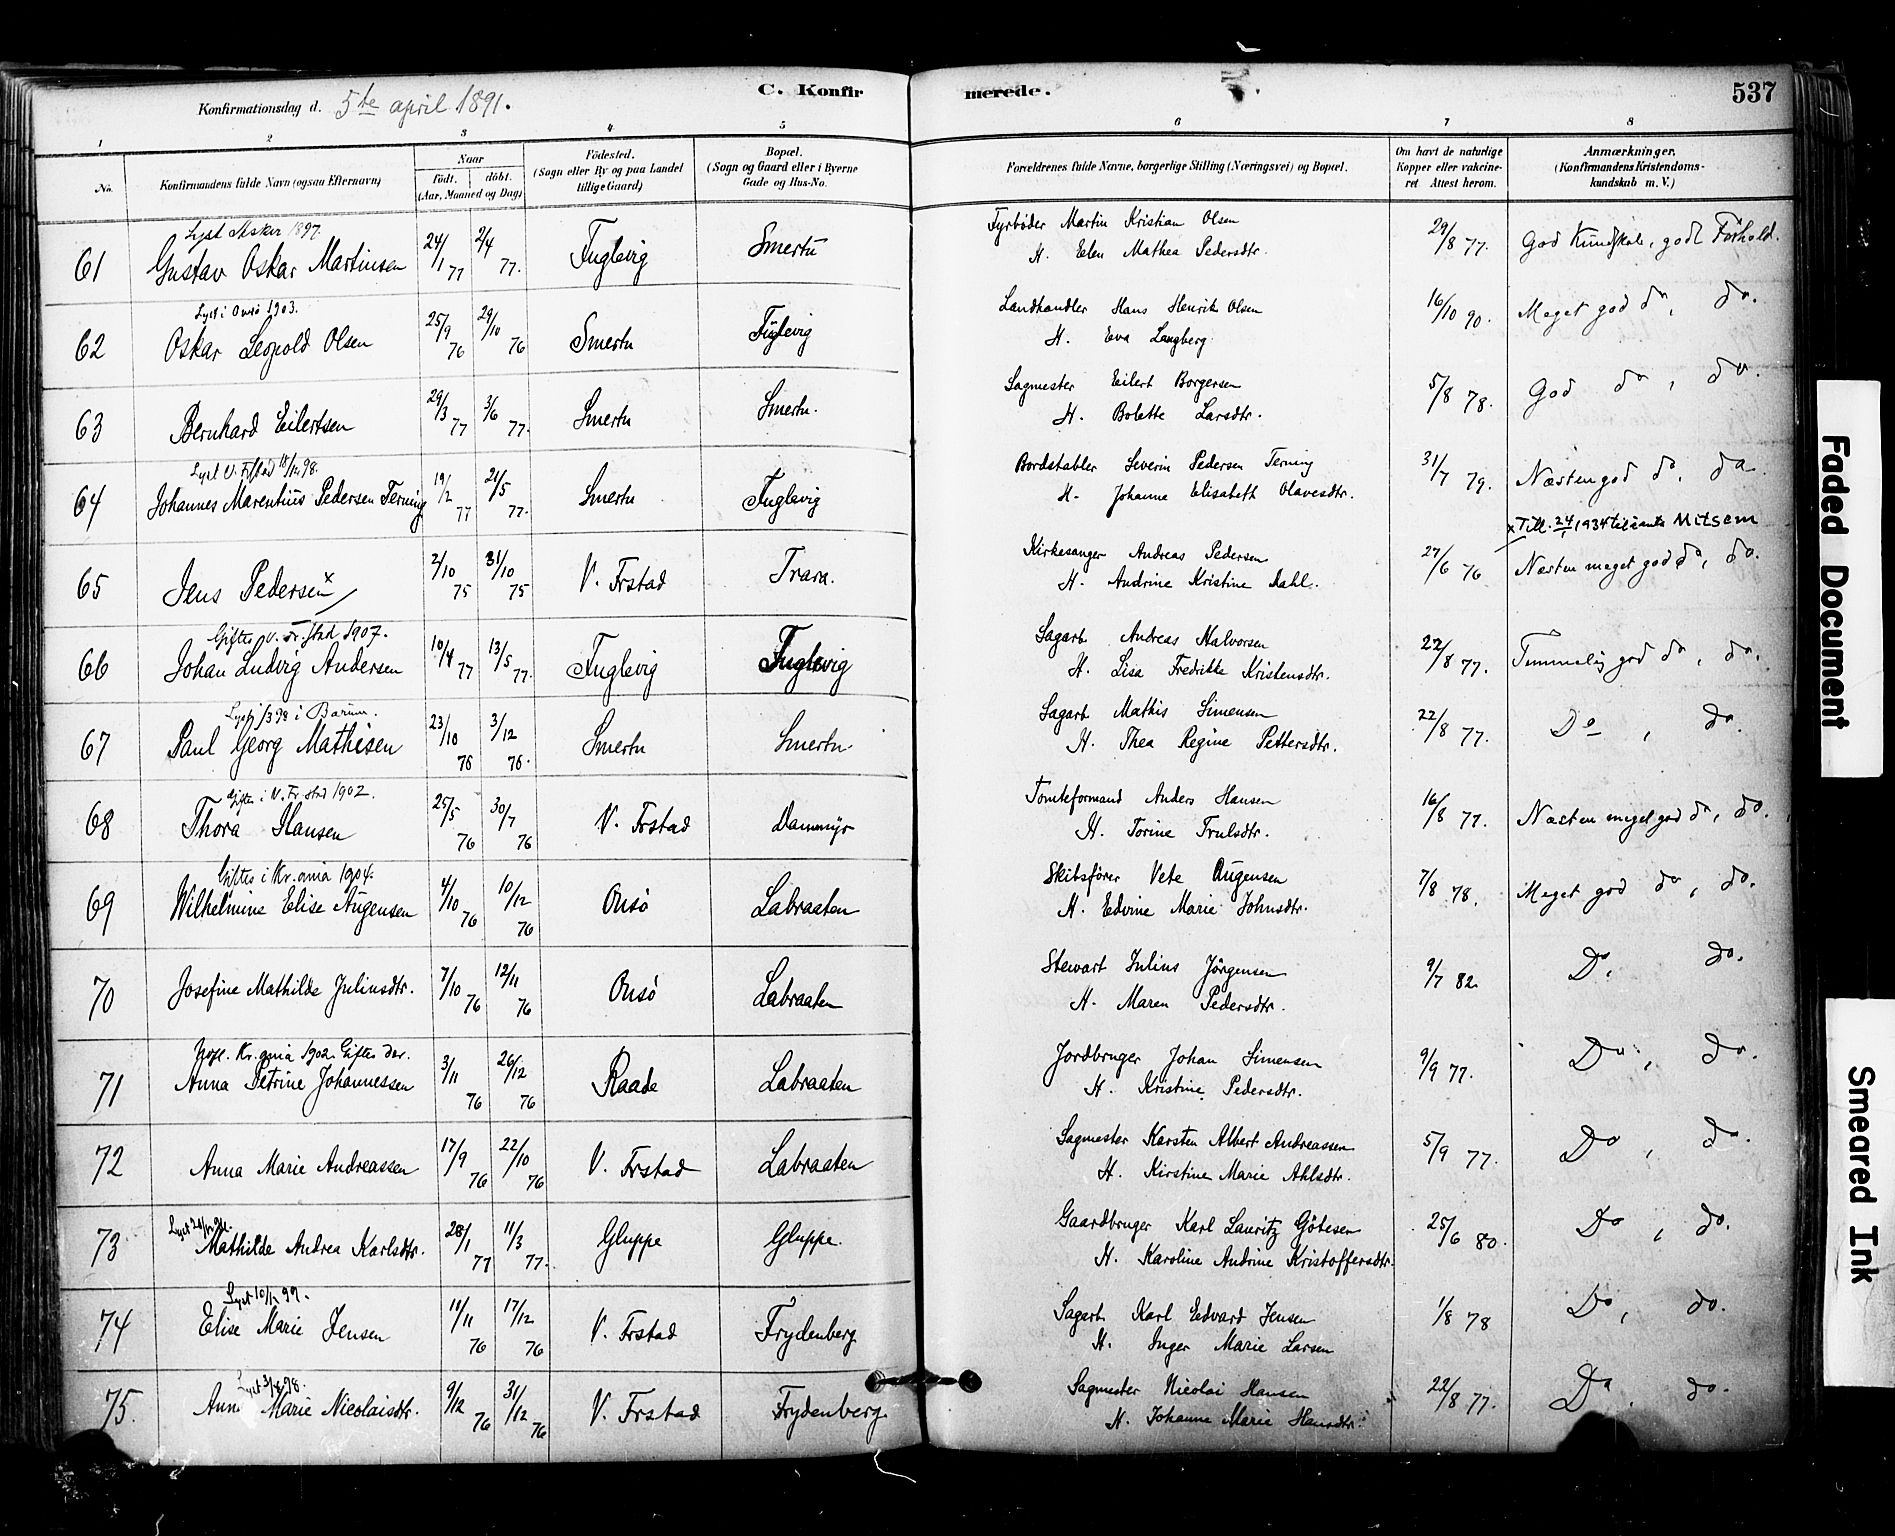 Konfirmationsdag d. 5te april 1891.
C. Konfirmerede.
537
1 2 3 4 5 6 7 8
No. Konfirmandens fulde Navn (ogsaa Efternavn) Naar født. døbt. (Aar, Maaned og Dag) Fødested. (Sogn eller By og paa Landet tillige Gaard) Bopæl. (Sogn og Gaard eller i Byerne Gade og Hus-No. Forældrenes fulde Navne, borgerlige Stilling (Næringsvei) og Bopæl. Om havt de naturlige Kopper eller vakcineret Attest herom. Anmærkninger, (Konfirmandens Kristendomskundskab m. V.)
Lyst Asker 1897.
61 Gustav Oskar Martinsen 24/1 77 2/4 77. Fuglevig Smertu Fyrbøder Martin Kristian Olsen 29/8 77. God Kundskab, godt Forhold.
H. Elen Mathea Pedersdtr.
Lyst i Onsö 1903.
62 Oskar Leopold Olsen 25/9 76 29/10 76 Smertu Fuglevig Landhandler Hans Henrik Olsen 16/10 90. Meget god do, do.
H. Eva Langberg
63 Bernhard Eilertsen 29/3 77 3/6 77. Smertu Smertu. Sagmester Eilert Borgersen 5/8 78. God do, do.
H. Bolette Larsdtr.
Lyst V. Frstad 18/12 98.
64 Johannes Marentius Pedersen Terning 19/2 77 21/5 77. Smertu Fuglevig Bordstabler Severin Pedersen Terning 31/7 79. Næsten god do, do.
H. Johanne Elisabeth Olavesdtr.
x Till. 24/1 1934 til å anta Mitsem
65 Jens Pedersen x 2/10 75 31/10 75 V. Frstad Trara. Kirkesanger Andreas Pedersen 27/6 76 Næsten meget god do, do.
H. Andrine Kristine Dahl.
Giftes V. Fr.stad 1907.
66 Johan Ludvig Andersen 10/4 77 13/5 77. Fuglevig Fuglevig Sagarb Andreas Halvorsen 22/8 77. Temmelig god do, do.
H. Lisa Fredrikke Kristensdtr.
98 i Bærum.
67 Paul Georg Mathisen 23/10 76 3/12 76. Smertu Smertu. Sagarb Mathis Simensen 22/8 77. Do, do.
H. Thea Regine Pettersdtr.
Giftes i V. Fr.stad 1902.
68 Thora Hansen 25/5 76 30/7 76 V. Frstad Dammyr Tomteformand Anders Hansen 16/8 77. Næsten meget god do, do.
H. Torine Trulsdtr.
Giftes i Kr.ania 1904.
69 Wilhelmine Elise Augensen 4/10 76 10/12 76 Onsö Labraaten Skibsfører Vete Augensen 7/8 78. Meget god do, do.
H. Edvine Marie Johnsdtr.
70 Josefine Mathilde Juliusdtr. 7/10 76 12/11 76 Onsö Labraaten Stewart Julius Jörgensen 9/7 82. Do, do.
H. Maren Pedersdtr.
Kr.ania 1902. Giftes der.
71 Anna Petrine Johannessen 3/11 76 26/12 76 Raade Labraaten Jordbruger Johan Simensen 9/9 77. Do, do.
H. Kristine Pedersdtr.
72 Anna Marie Andreassen 17/9 76 22/10 76 V. Frstad Labraaten Sagmester Karsten Albert Andreassen 5/9 77. Do, do.
H. Kirstine Marie Ahlsdtr.
Lyst
73 Mathilde Andrea Karlsdtr. 28/1 77 11/3 77. Gluppe Gluppe. Gaardbruger Karl Lauritz Götesen 25/6 80. Do, do.
H. Karoline Andrine Kristoffersdtr.
Lyst 10/12 99.
74 Elise Marie Jensen 11/11 76 17/12 76 V. Frstad Frydenberg Sagarb Karl Edvard Jensen 1/8 78 Do, do.
H. Inger Marie Larsen
Lyst 3/8 98.
75. Anna Marie Nicolaisdtr. 9/12 76 31/12 76 V. Frstad Frydenberg Sagmester Nicolai Hansen 22/8 77. Do, do.
H. Johanne Marie Hansdtr.
Faded Document
Smeared Ink